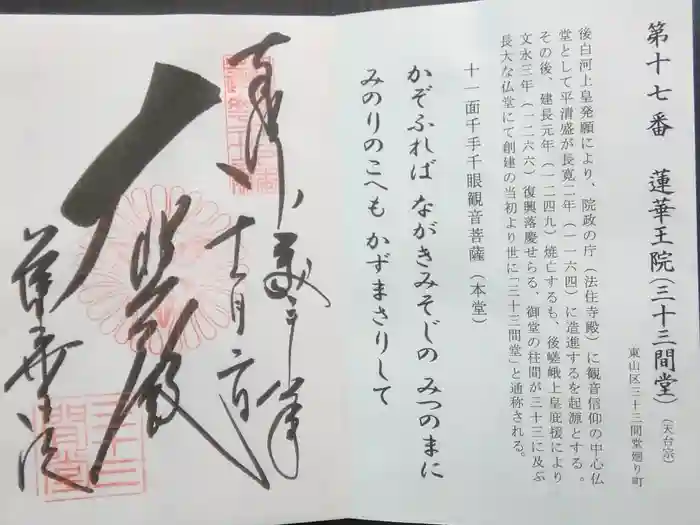 第十七番 蓮華王院(三十三間堂)(天台宗)
東山区三十三間堂廻り町
後白河上皇発願により、院政の庁(法住寺殿)に観音信仰の中心仏
堂として平清盛が長寛二年(一一六四)に造進するを起源とする。
その後、建長元年(一二四九)焼亡するも、後嵯峨上皇庇援により
文永三年(一二六六)復興落慶せらる、御堂の柱間が三十三に及ぶ
長大な仏堂にて創建の当初より世に「三十三間堂」と通称される。
十一面千手千眼観音菩薩(本堂)
かぞふれば ながきみそじの みつのまに
みのりのこへも かずまさりして
奉拝
十一月六日
大悲殿
蓮華王院
三十三
間堂